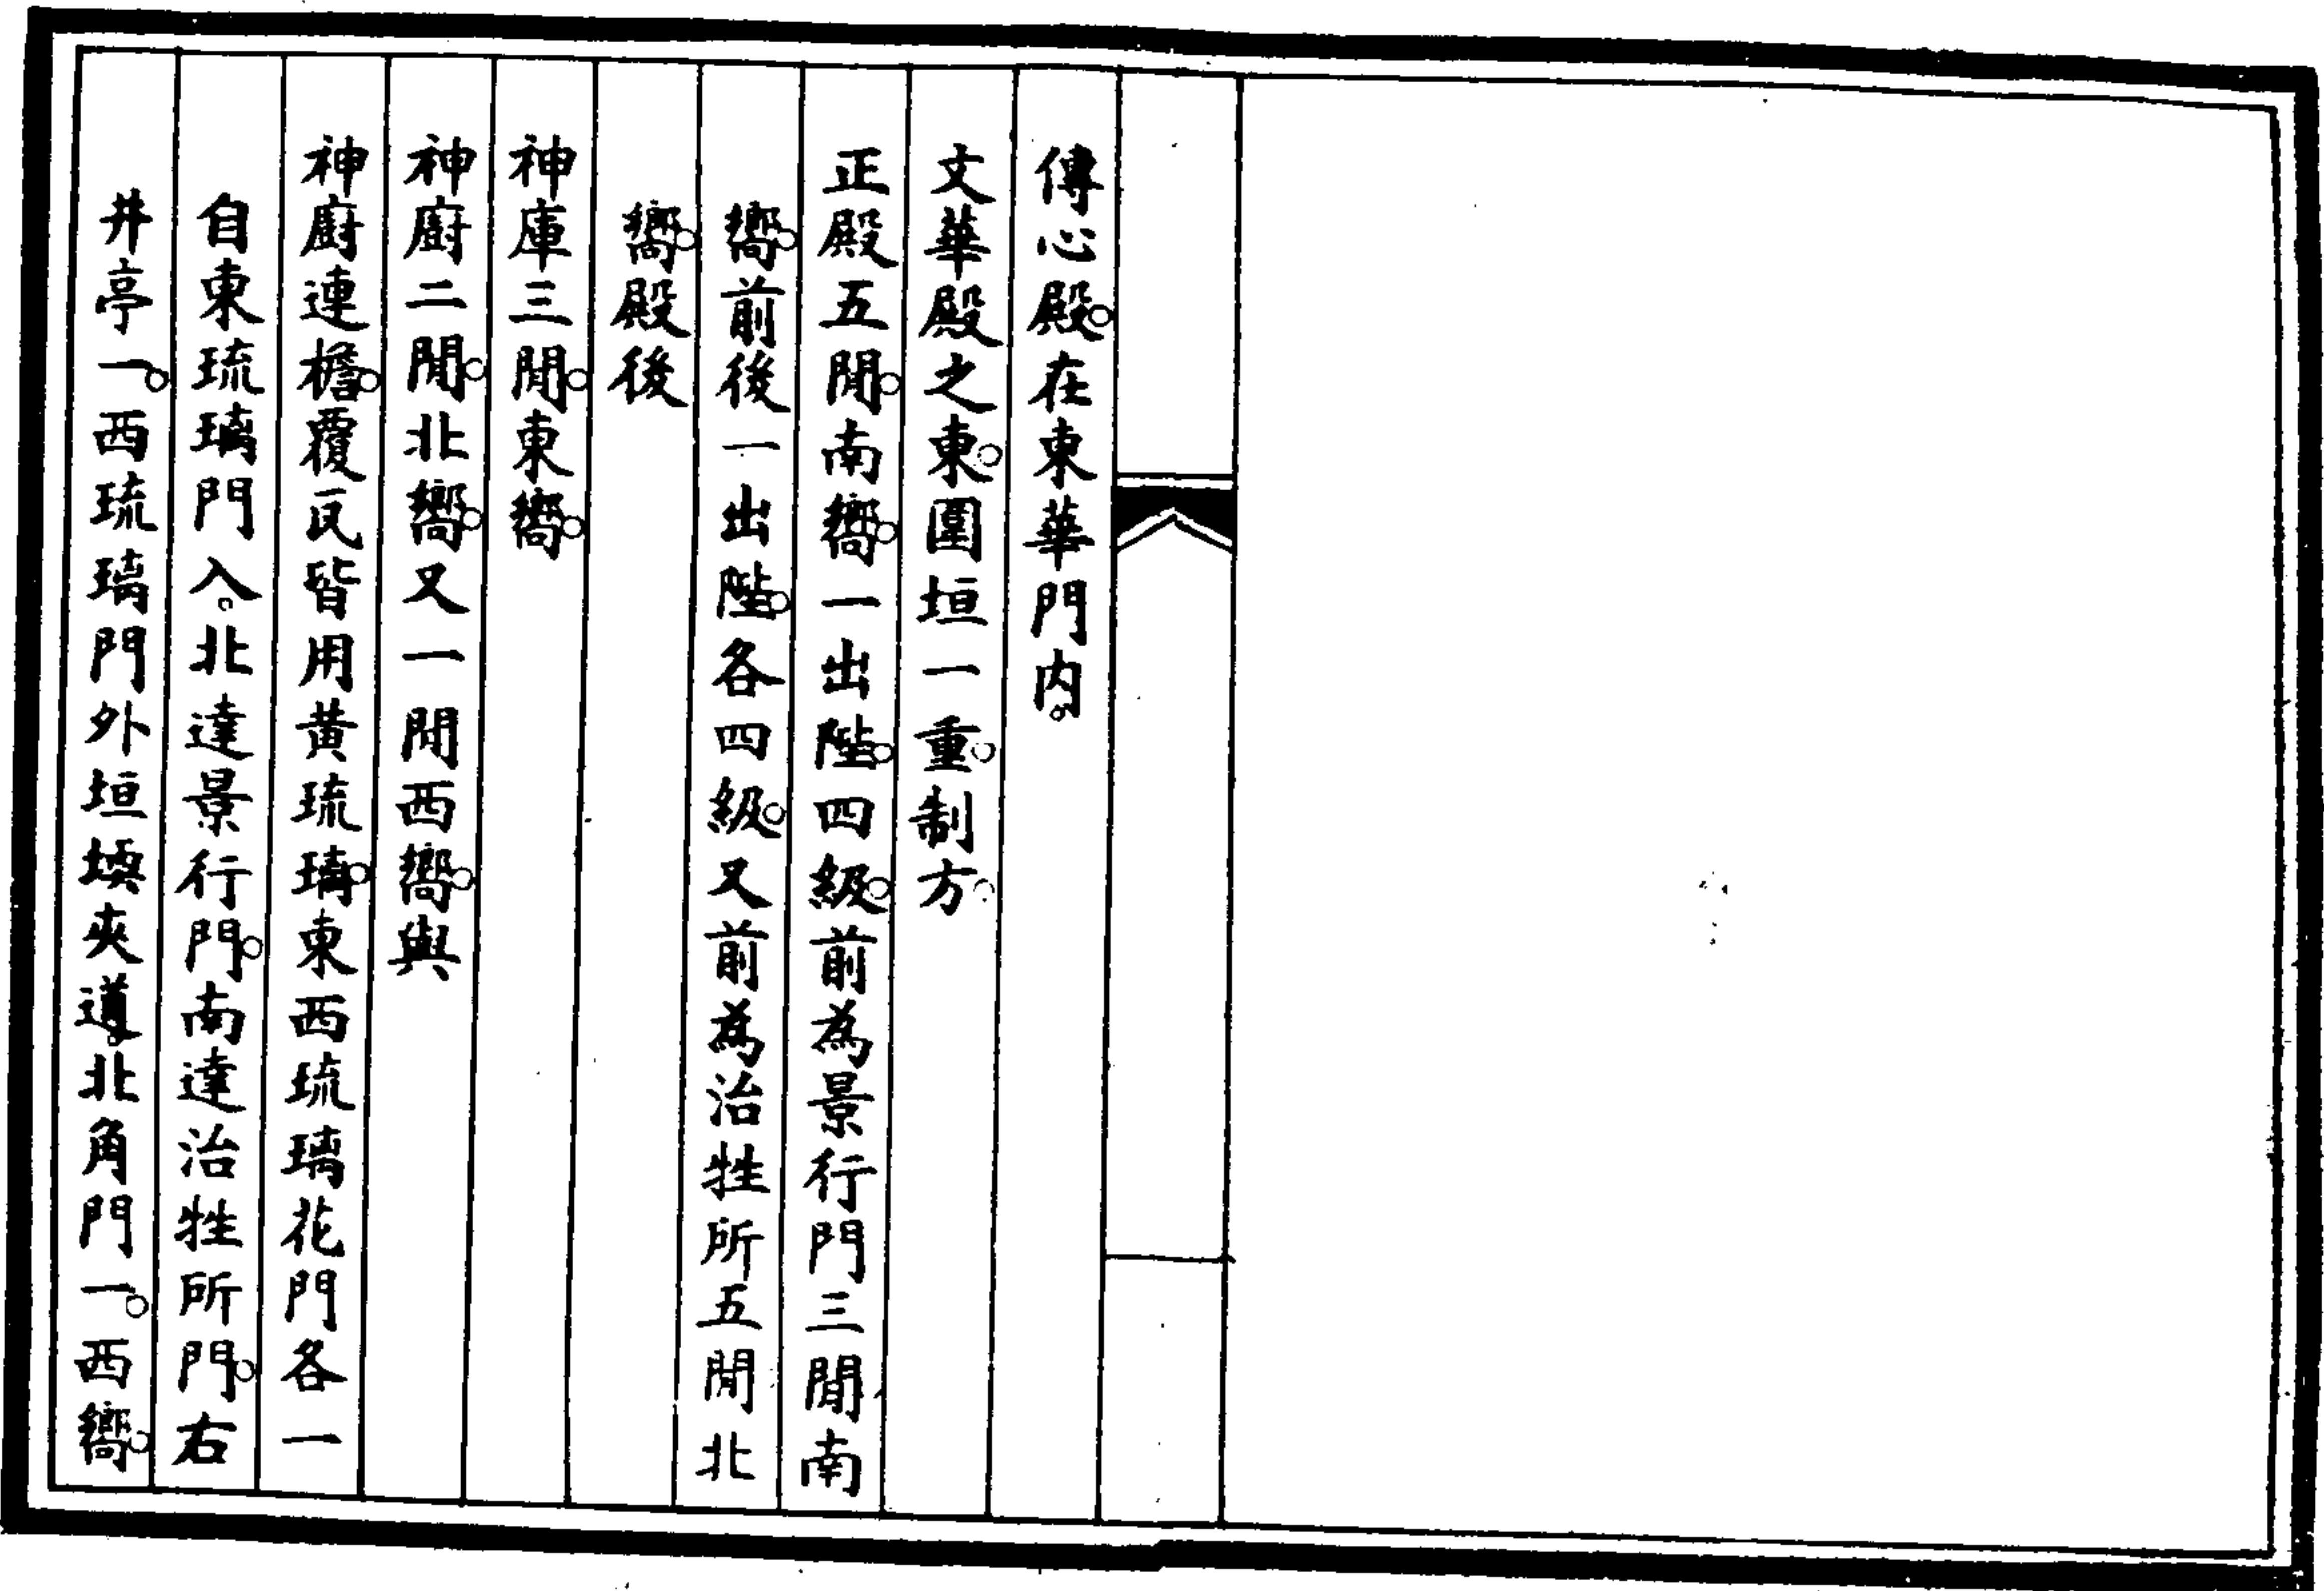 傳心殿。在東華門内。
文華殿之東。圍垣一重。制方。
正殿五閒。南嚮。一出陛。四級。前為景行門三閒南
嚮。前後一出陛。各四級。又前為治牲所五閒北
嚮。殿後
神庫三閒。東嚮。
神廚二閒。北嚮。又一閒西嚮。與
神廚連檐。覆瓦皆用黃琉璃。東西琉璃花門各一
自東琉璃門入。北達景行門。南達治牲所門。右
井亭一。西琉璃門外垣堧夾道。北角門一。西嚮。